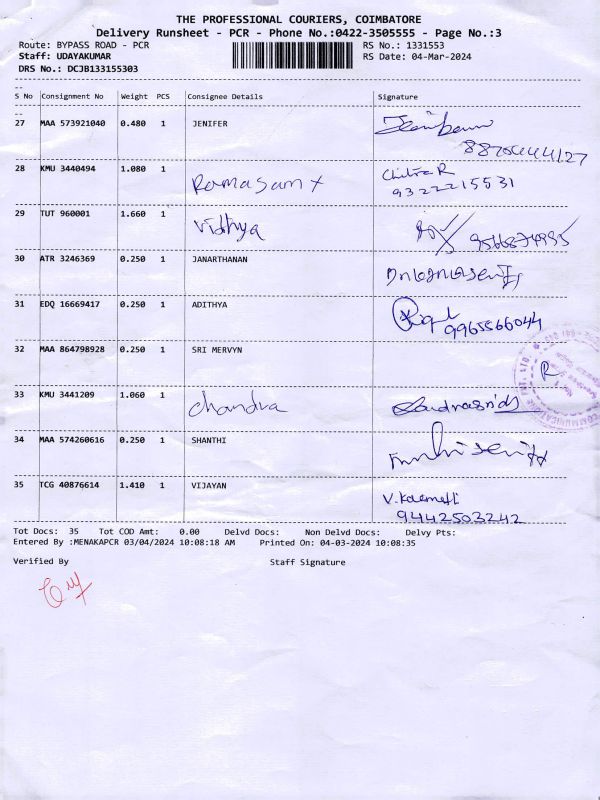 THE PROFESSIONAL COURIERS, COIMBATORE
Delivery Runsheet - PCR - Phone No.:0422-3505555 - Page No.:3
Route: BYPASS ROAD - PCR RS No.: 1331553
Staff: UDAYAKUMAR RS Date: 04-Mar-2024
DRS No.: DCJB133155303
S No Consignment No Weight PCS Consignee Details Signature
27 MAA 573921040 0.480 1 JENIFER
28 KMU 3440494 1.080 1 Chitra R
9322215531
29 TUT 960001 1.660 1 Vidhya
30 ATR 3246369 0.250 1 JANARTHANAN
31 EDQ 16669417 0.250 1 ADITHYA
9965566044
32 MAA 864798928 0.250 1 SRI MERVYN R
33 KMU 3441209 1.060 1 Chandra
34 MAA 574260616 0.250 1 SHANTHI
35 TCG 40876614 1.410 1 VIJAYAN
9442503242
Tot Docs: 35 Tot COD Amt: 0.00 Delvd Docs: Non Delvd Docs: Delvy Pts:
Entered By :MENAKAPCR 03/04/2024 10:08:18 AM Printed On: 04-03-2024 10:08:35
Verified By Staff Signature